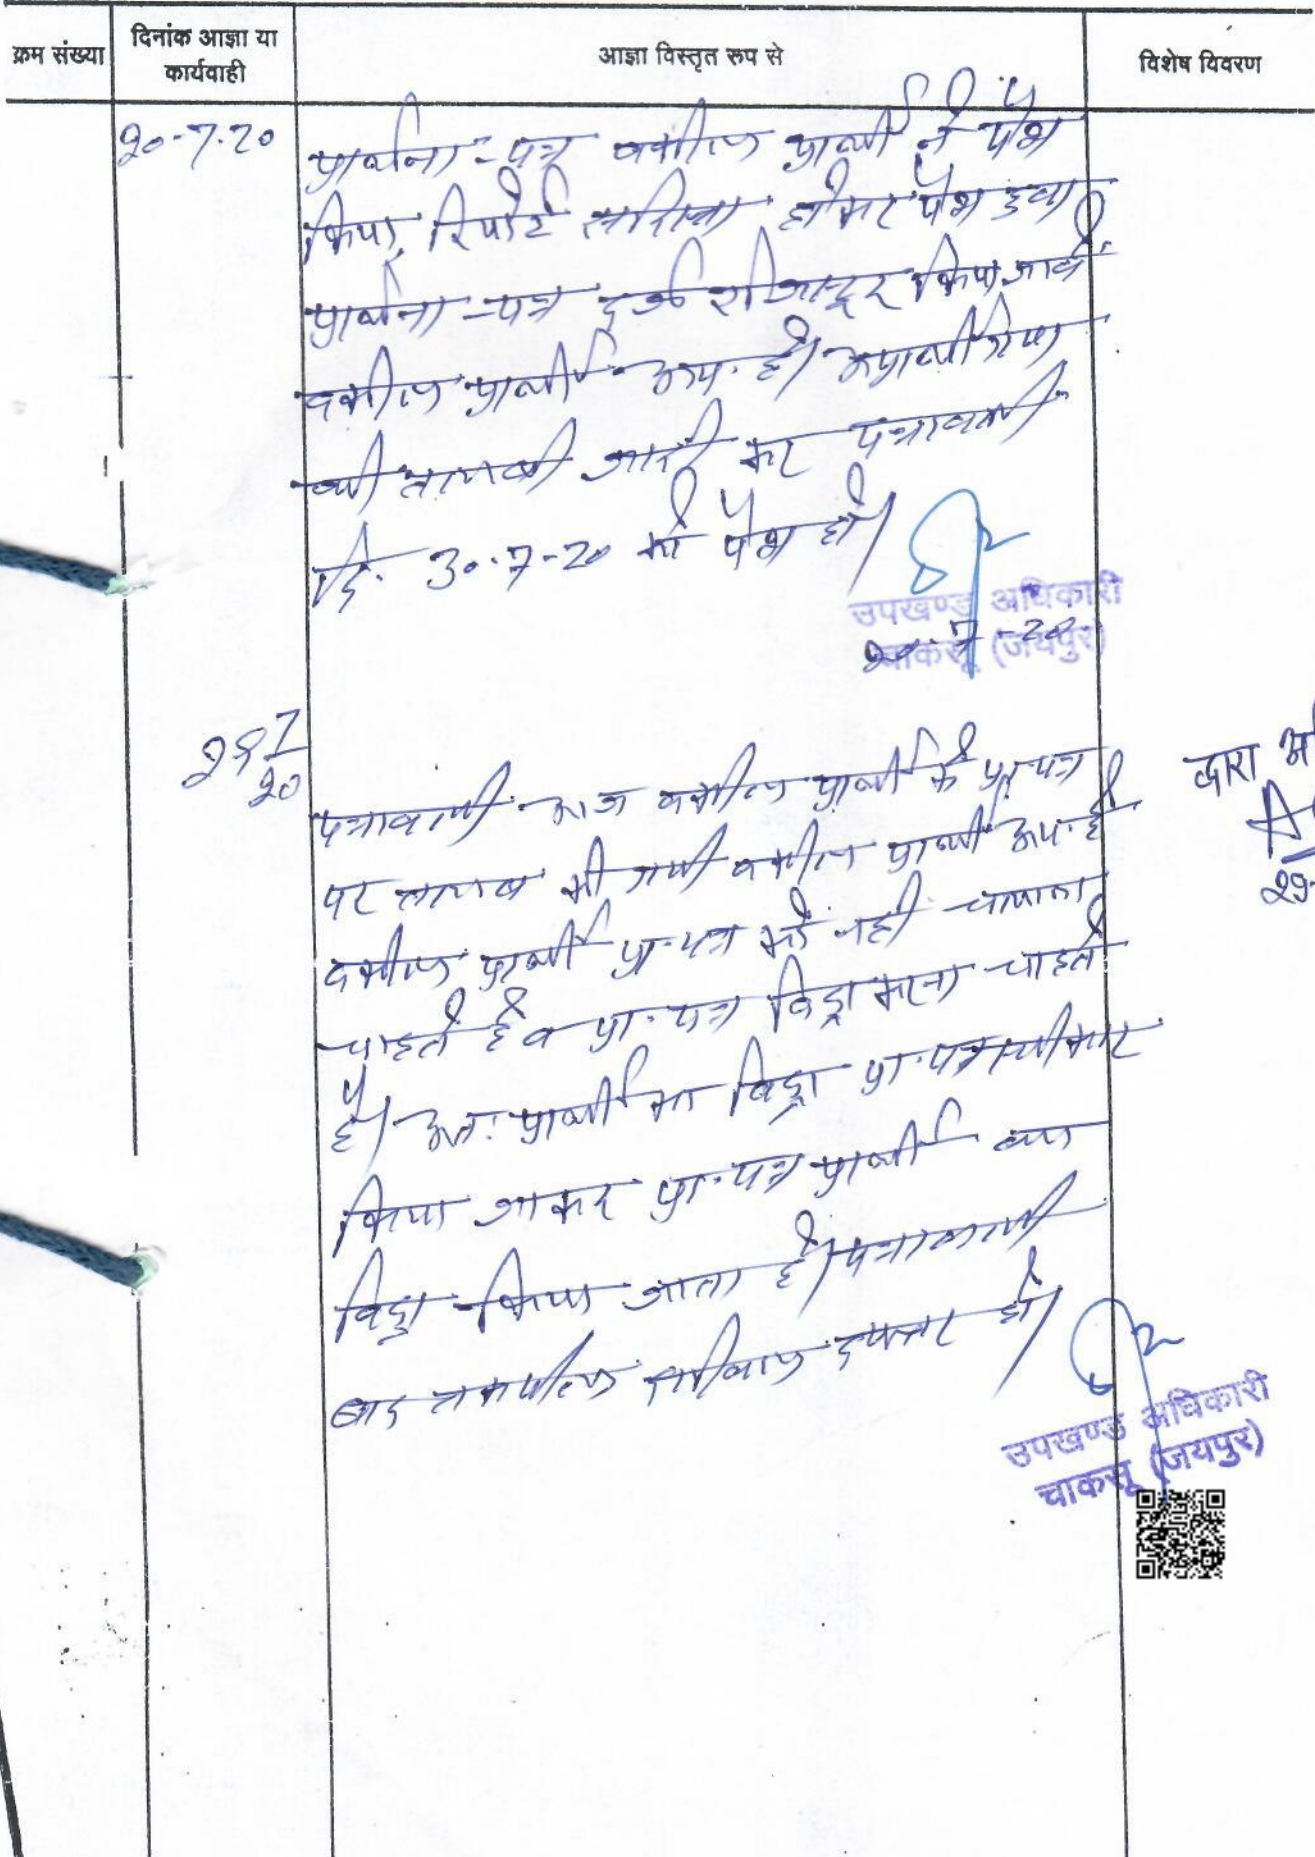 क्रम संख्या
दिनांक आज्ञा या
कार्यवाही
आज्ञा विस्तृत रूप से
विशेष विवरण
20-7-20
प्रार्थना-पत्र वकील प्रार्थी ने पेश
किया, रिपोर्ट सरिश्ता होकर पेश हुआ
प्रार्थना-पत्र दर्ज रजिस्टर किया जावे
वकील प्रार्थी उप. है। अप्रार्थीगण
की तलबी जारी कर पत्रावली
दि. 30-7-20 को पेश हो।
उपखण्ड अधिकारी
चाकसू (जयपुर)
20-7-20
29 7/20
पत्रावली आज वकील प्रार्थी के प्रा. पत्र
पर तलब की गयी वकील प्रार्थी उप. है
वकील प्रार्थी प्रा. पत्र को नही चलाना
चाहते है व प्रा. पत्र विड्रा करना चाहते
है। अतः प्रार्थी का विड्रा प्रा. पत्र स्वीकार
किया जाकर प्रा. पत्र प्रार्थी
विड्रा किया जाता है। पत्रावली
बाद तकमील दाखिल दफ्तर हो।
उपखण्ड अधिकारी
चाकसू (जयपुर)
द्वारा
29-